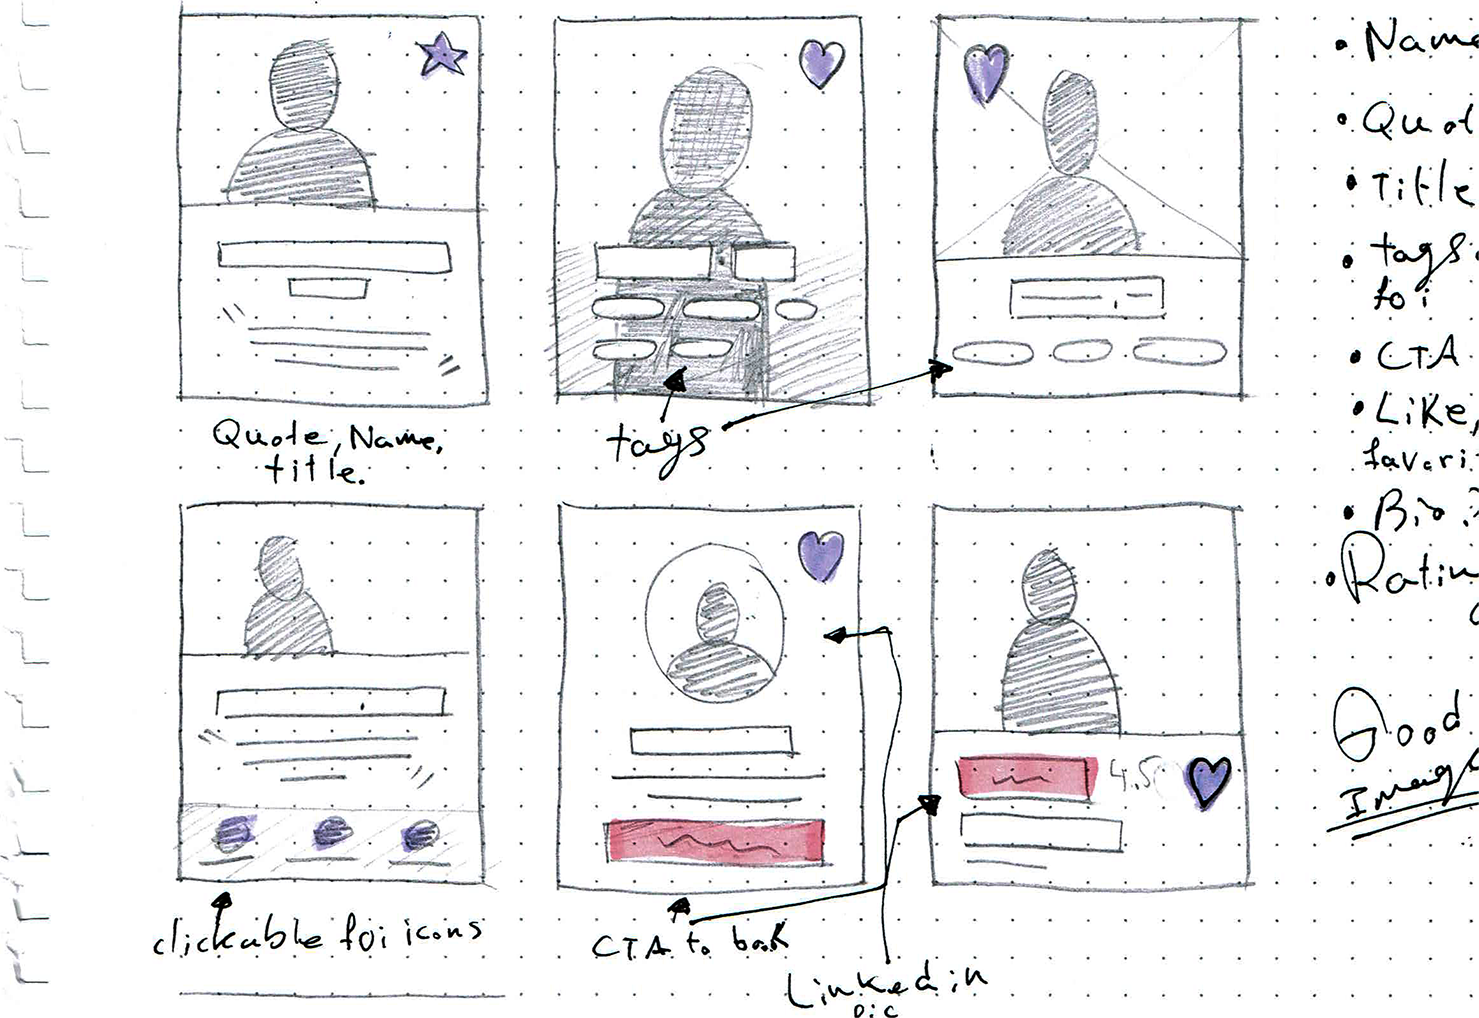 Quote, Name,
title.
tags
clickable foi icons
CTA to book
Linked in
pic
4.5
• Name
• Quot
• Title
• tags
foi
• CTA
• Like,
favori
• Bio?
• Ratin
Good
Image